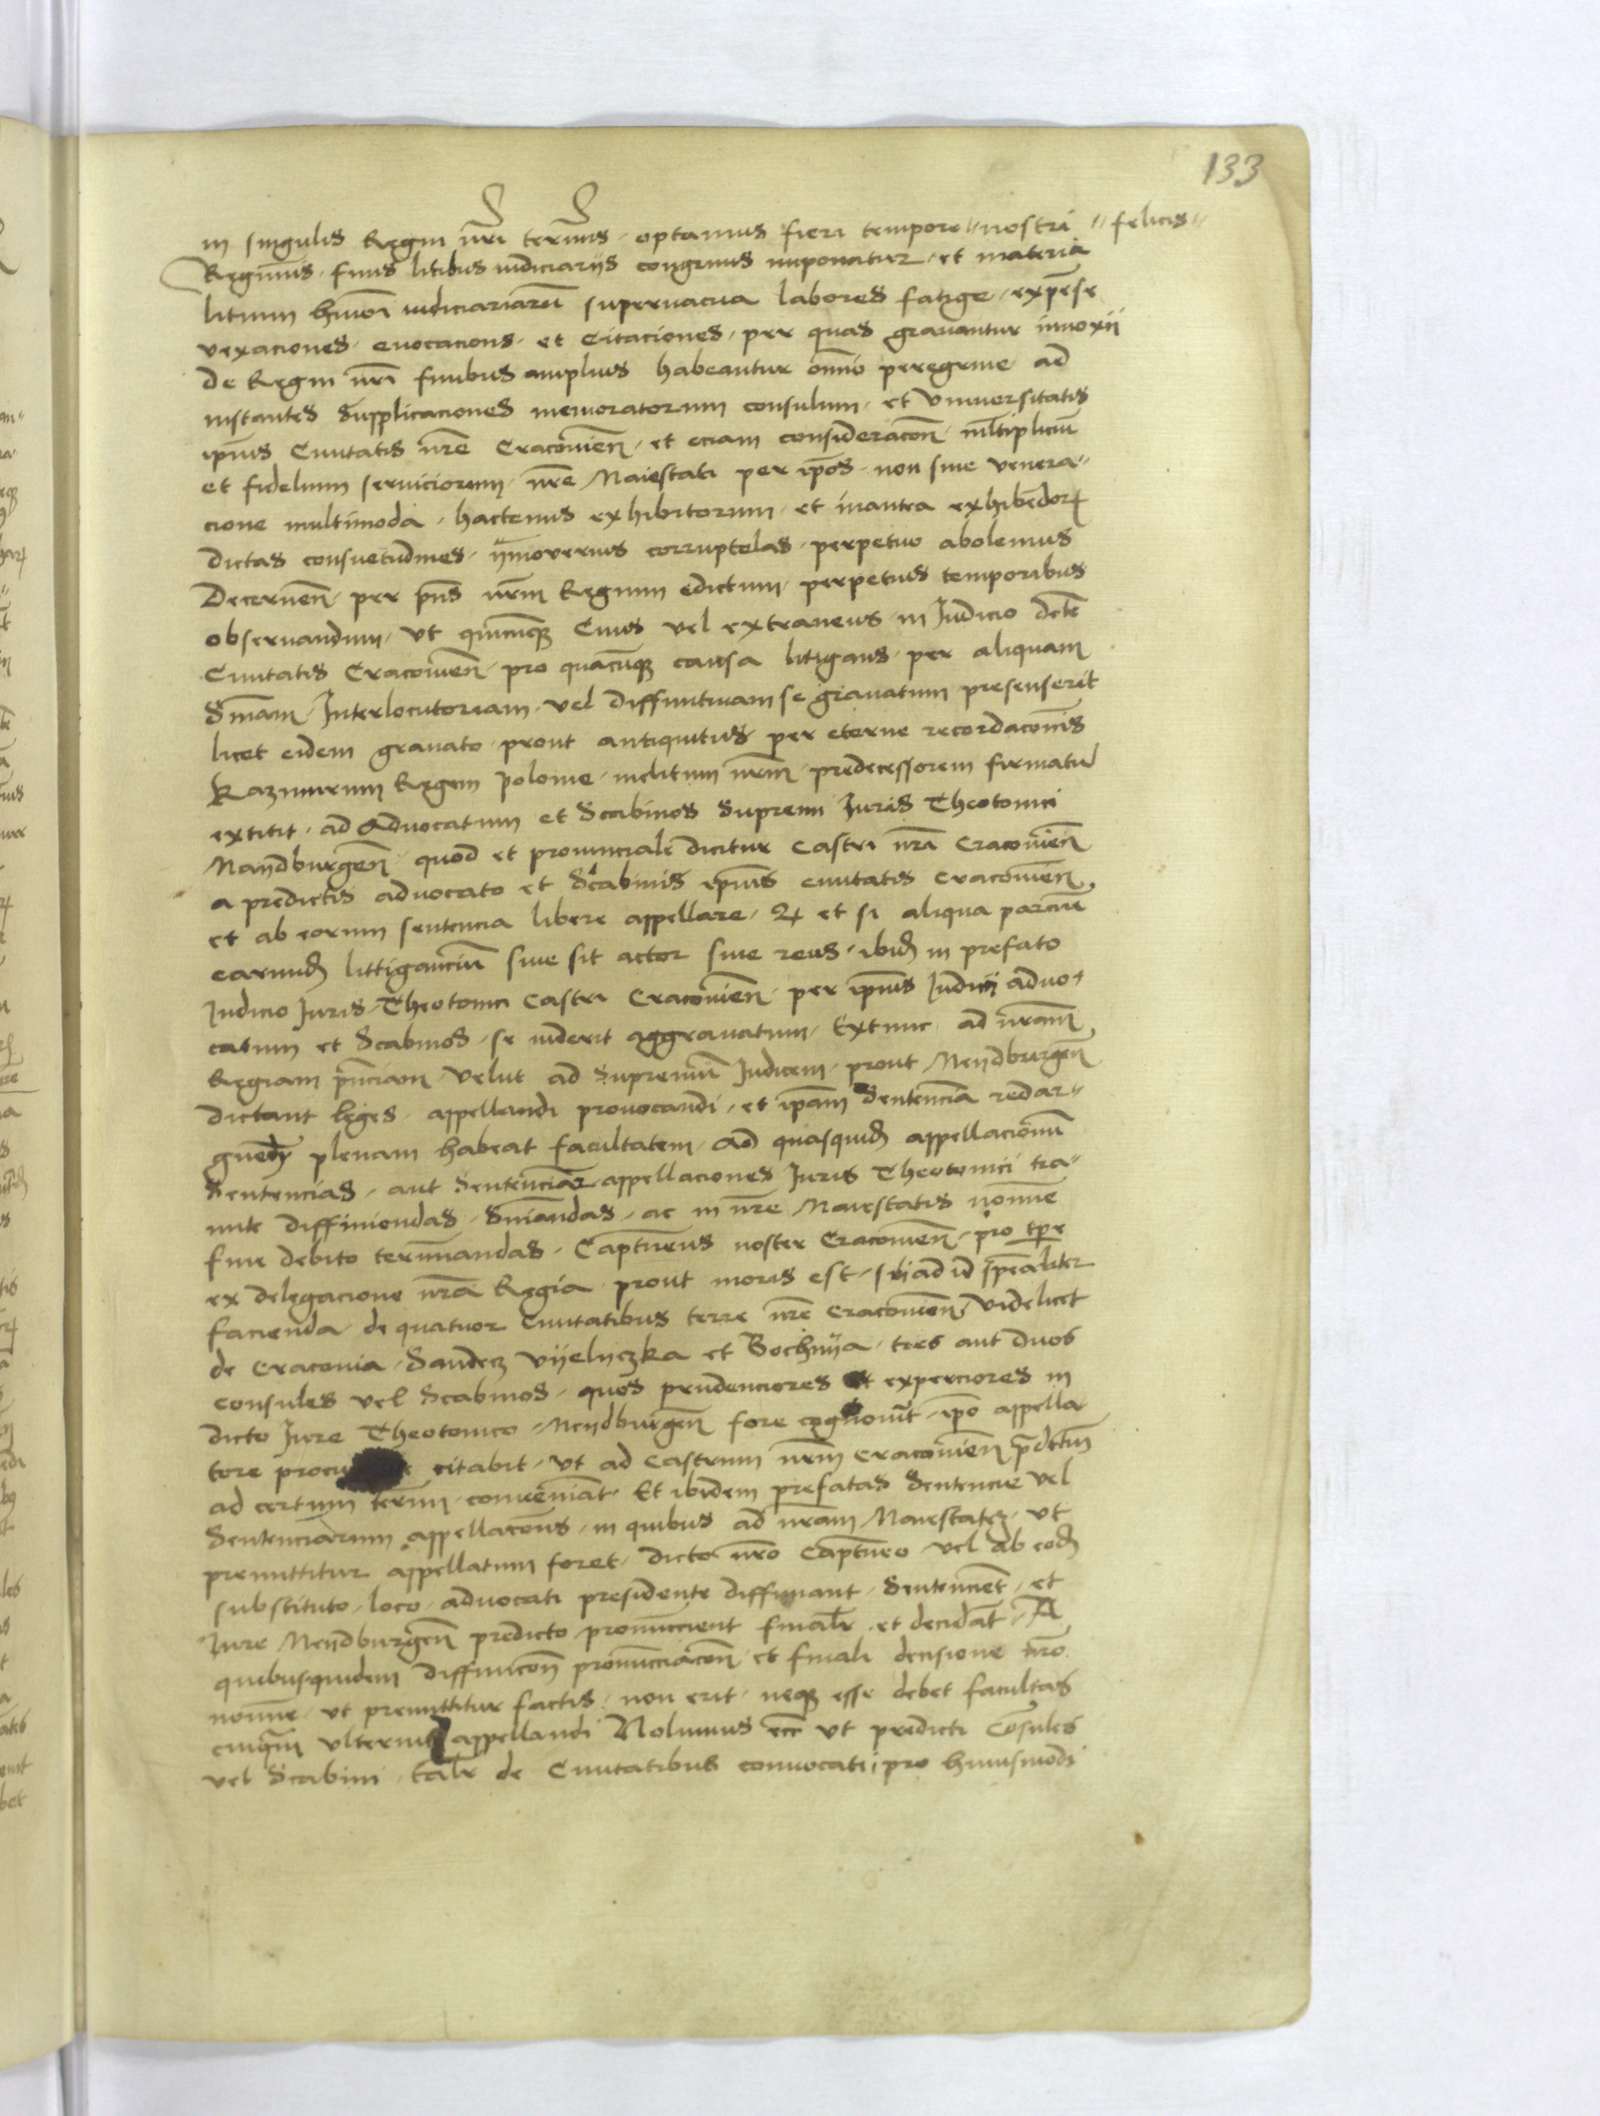 133
in singulis Regni nr̄i termīs optamus fieri tempore nostri felicis
Regiminis finis litibus iudiciarijs congruus imponatur et materia
litium hmōi iudiciariarū supervacua labores fatige expēse
vexaciones evocacions et Citaciones per quas gravantur innoxii
de Regni nr̄i finibus amplius habeantur om̄io peregrine ad
instantes supplicaciones memoratorum consulum et Universitatis
ip̄ius Civitatis nr̄e Cracovien̄ et eciam consideracōn̄ mltiplicium
et fidelium serviciorum nr̄e Maiestati per ip̄os non sine venera
cione multimoda hactenus exhibitorum et inantea exhibēdoꝝ
dictas consuetudines ymoverius corruptelas perpetuo abolemus
Decernen̄ per pn̄s nr̄m Regium edictum perpetuis temporibus
observandum Ut quicūqȝ Civis vel extraneus in Judicio dc̄te
Civitatis Cracovien̄ pro quacūqȝ causa litigans per aliquam
Sn̄iam Interlocutoriam vel diffinitivam se gravatum presenserit
licet eidem gravato prout antiquitus per eterne recordacōnis
Kazimirum Regem Polonie inclitum nr̄m predecessorem firmatū
extitit ad Advocatum et Scabinos Supremi Juris Theotonici
Maydburgen̄ quod et provinciale dicitur Castri nr̄i Cracovien̄
a predictis advocato et Scabinis ip̄ius civitatis Cracovien̄
et ab eorum sentencia libere appellare Qꝫ et si aliqua parciū
earundȝ littigancium sive sit actor sive reus ibidȝ in prefato
Judicio Juris Theotonici Castri Cracovien̄ per ip̄ius Judicij advo
catum et Scabinos se viderit aggravatum Extunc ad nr̄am
Regiam pn̄ciam velut ad Supremū Judicem prout Meydburgen̄
dictant leges appellandi provocandi et ip̄am Sentenciā redar
guendi plenam habeat facultatem Ad quasquidȝ appellacionū
Sentencias aut Sentenciar appellaciones Juris Theotonici tra
mite diffiniendas Sn̄iandas ac in nr̄e Maiestatis noīne
fine debito terminandas Captūreus noster Cracovien̄ pro tpe
ex delegacione nr̄a Regia prout moris est sibi ad id spēaliter
facienda de quatuor Civitatibus terre nr̄e Cracovien̄ Videlicet
de Cracovia Sandecz Vijelyczka et Bochnija tres aut duos
Consules vel Scabinos quos prudenciores et experciores in
dicto Jure Theotonico Meydburgen̄ fore cognoverit ip̄o appella
tore citabit ut ad Castrum nr̄m Cracovien̄ p̄dictum
ad certum termī conveniāt Et ibidem prefatas Sentencie vel
Sentenciarum appellacōns in quibus ad nr̄am Maiestatē ut
premittitur appellatum foret dicto nr̄o Captūreo vel ab eodȝ
substituto loco advocati presidente diffiniant Sentencient et
Jure Meydburgen̄ predicto pronunccient finalr̄ et decidāt A
quibusquidem diffinicōn̄ pronuncciacōn̄ et finali decisione nr̄o
noīne ut premittitur factis non erit neqȝ esse debet facultas
cuiqȝ ulterius appellandi Nolumus ecc̄ ut predicti Cōsules
vel Scabini talr̄ de Civitatibus convocati pro huiusmodi